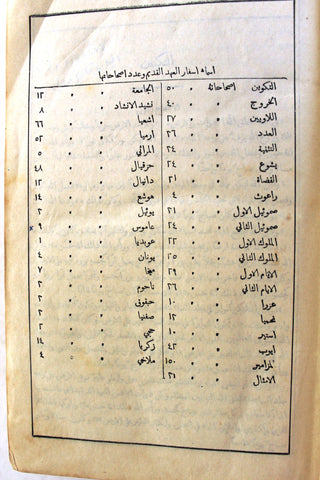 اسماء اسفار العهد القديم وعدد اصحاحاتها
التكوين اصحاحاته ٥٠
الخروج " " ٤٠
اللاويين " " ٢٧
العدد " " ٣٦
التثنية " " ٣٤
يشوع " " ٢٤
القضاة " " ٢١
راعوث " " ٤
صموئيل الاول " " ٣١
صموئيل الثاني " " ٢٤
الملوك الاول " " ٢٢
الملوك الثاني " " ٢٥
الايام الاول " " ٢٩
الايام الثاني " " ٣٦
عزرا " " ١٠
نحميا " " ١٣
استير " " ١٠
ايوب " " ٤٢
المزامير " " ١٥٠
الامثال " " ٣١
الجامعة " " ١٢
نشيد الانشاد " " ٨
اشعيا " " ٦٦
ارميا " " ٥٢
المراثي " " ٥
حزقيال " " ٤٨
دانيال " " ١٢
هوشع " " ١٤
يوئيل " " ٣
عاموس " " ٩
عوبديا " " ١
يونان " " ٤
ميخا " " ٧
ناحوم " " ٣
حبقوق " " ٣
صفنيا " " ٣
حجي " " ٢
زكريا " " ١٤
ملاخي " " ٤